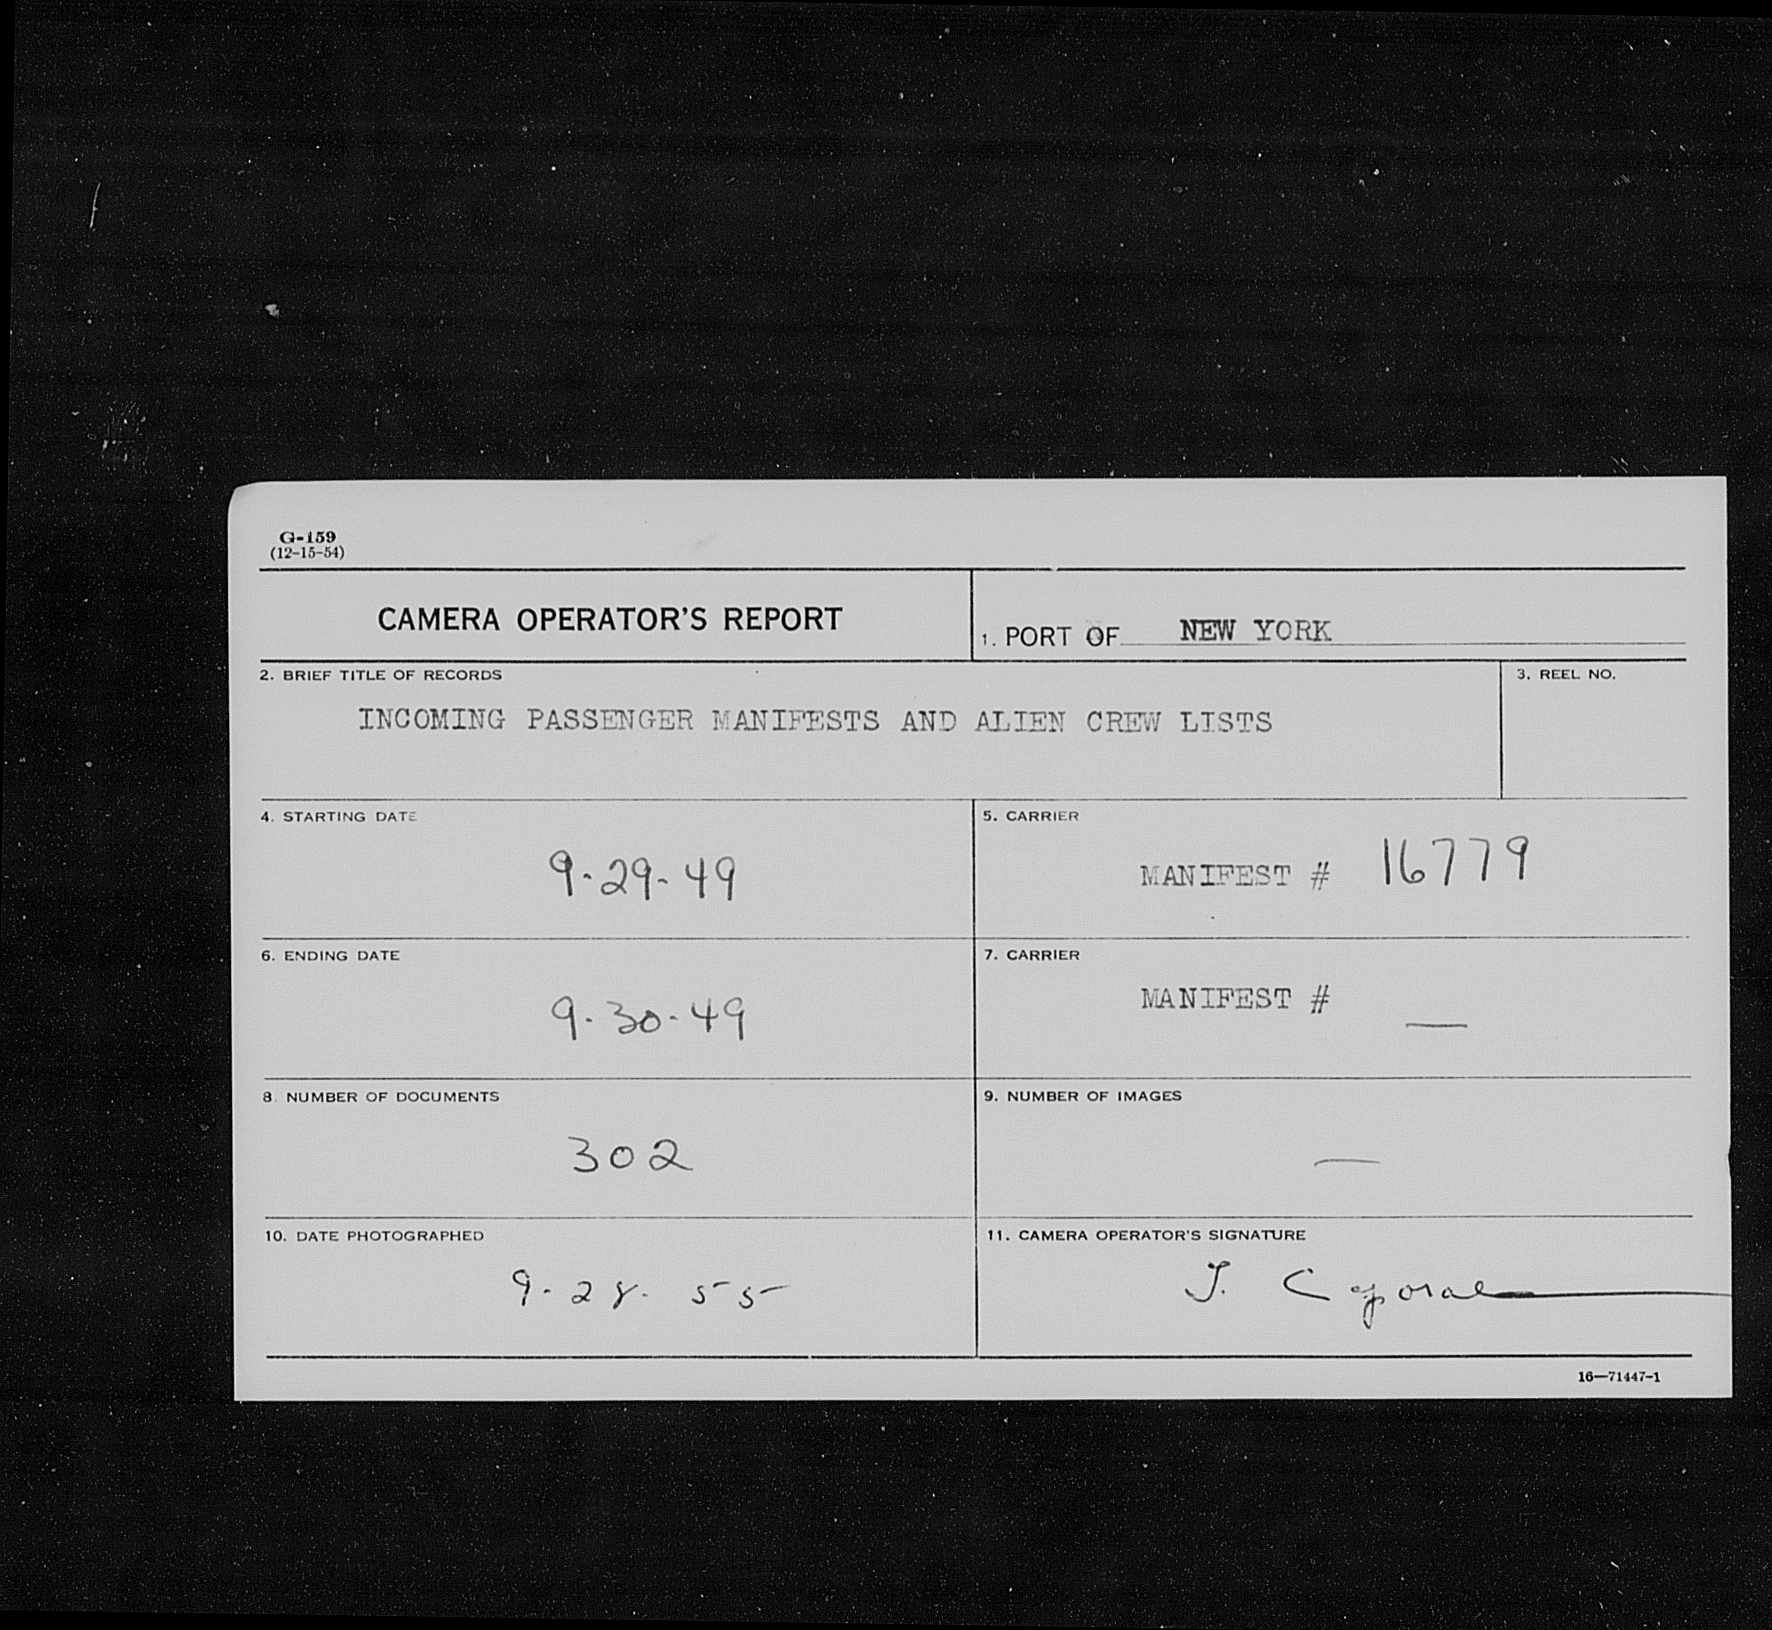 G-159
(12-15-54)
CAMERA OPERATOR'S REPORT
1. PORT OF NEW YORK
2. BRIEF TITLE OF RECORDS
INCOMING PASSENGER MANIFESTS AND ALIEN CREW LISTS
3. REEL NO.
4. STARTING DATE
9-29-49
5. CARRIER
MANIFEST # 16779
6. ENDING DATE
9-30-49
7. CARRIER
MANIFEST # —
8. NUMBER OF DOCUMENTS
302
9. NUMBER OF IMAGES
—
10. DATE PHOTOGRAPHED
9-28-55
11. CAMERA OPERATOR'S SIGNATURE
16—71447-1